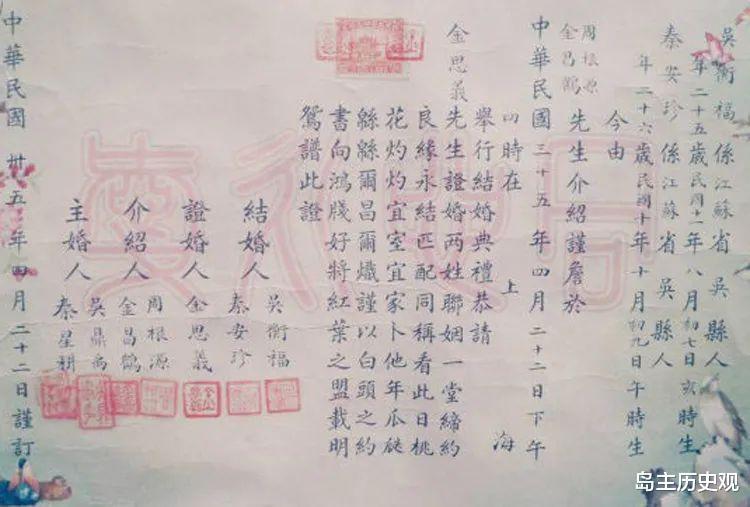 吳衡福係江蘇省吳縣人
年二十五歲民國十一年八月初七日亥時生
秦安珍係江蘇省吳縣人
年二十六歲民國十年十月初九日午時生
今由
周根源
金昌鶴
先生介紹謹詹於
中華民國三十五年四月二十二日下午
四時在上海
舉行結婚典禮恭請
金思義先生證婚两姓聯姻一堂締約
良緣永結匹配同稱看此日桃
花灼灼宜室宜家卜他年瓜瓞
緜緜爾昌爾熾謹以白頭之約
書向鴻牋好將紅葉之盟載明
鴛譜此證
結婚人 吳衡福 秦安珍
證婚人 金思義
介紹人 周根源 金昌鶴
主婚人 吳鼎禹 秦星耕
中華民國卅五年四月二十二日謹訂
岛主历史观